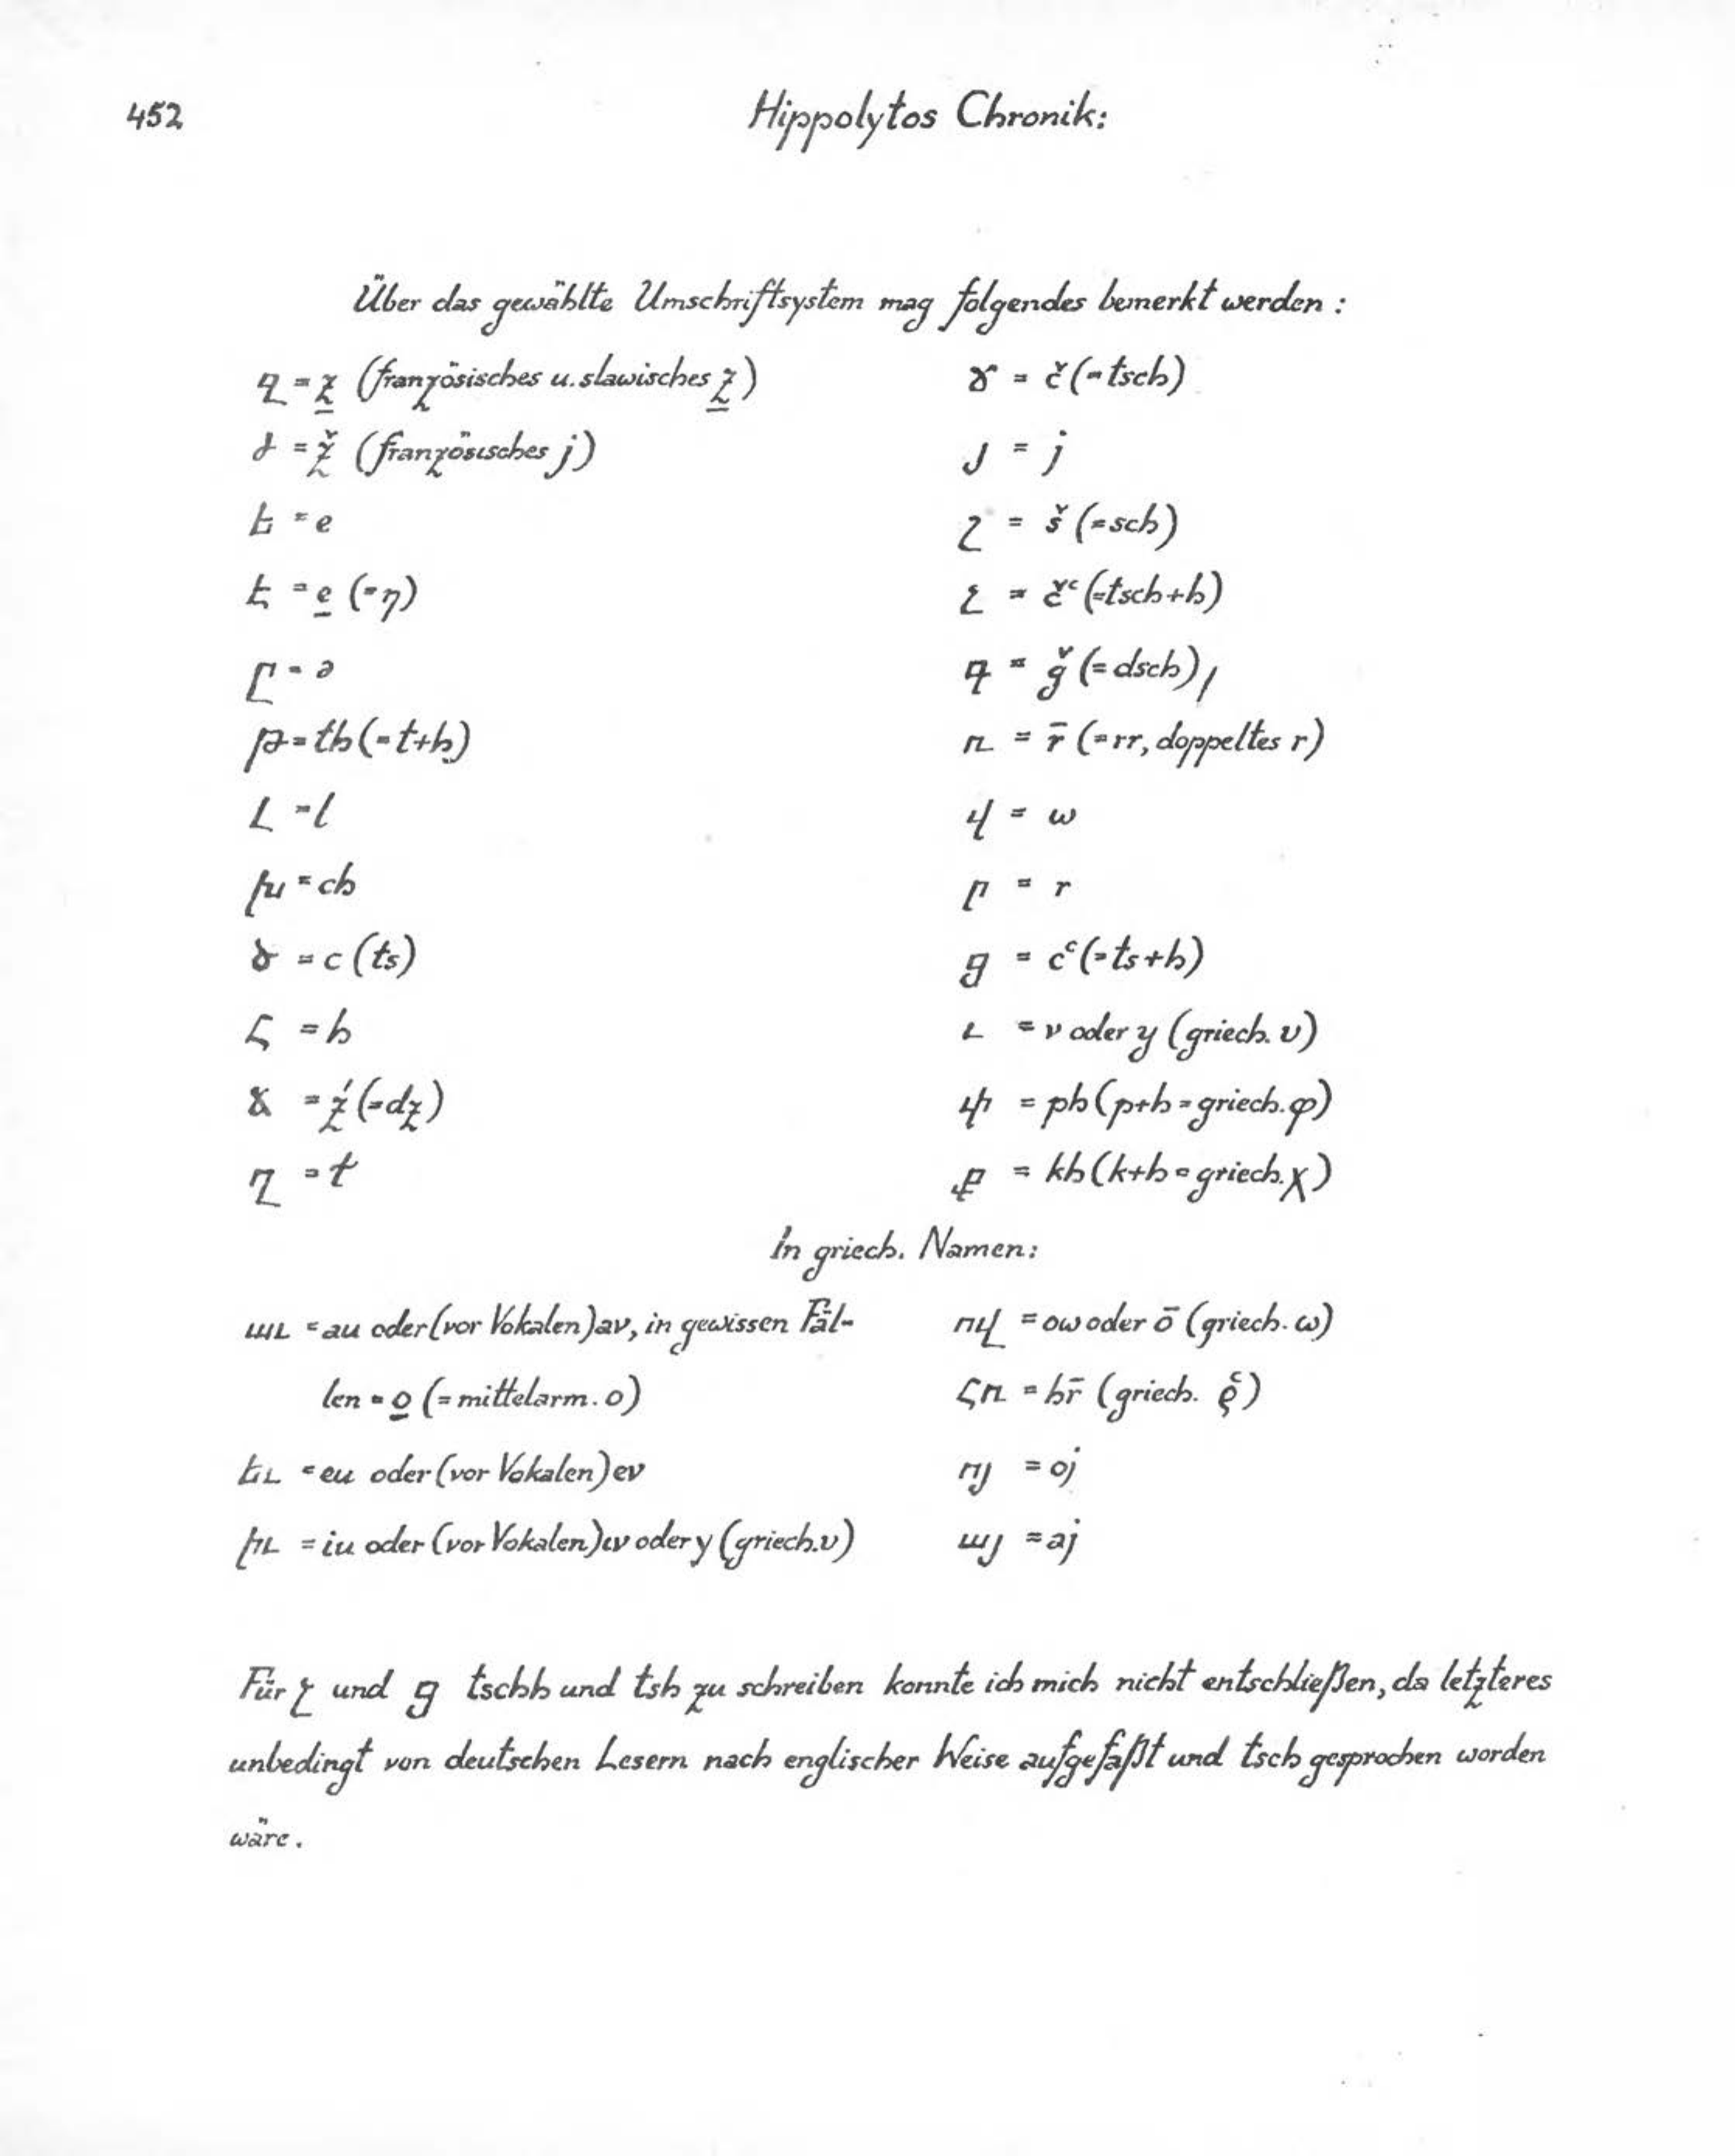 452
Hippolytos Chronik:
Über das gewählte Umschriftsystem mag folgendes bemerkt werden :
զ = z̲ (französisches u. slawisches z̲)
ժ = ž (französisches j)
ե = e
է = e̲ (= η)
ը = ə
թ = th (= t+h)
լ = l
խ = ch
ծ = c (ts)
հ = h
ձ = ź (= dz)
ղ = ł
ճ = č (= tsch)
յ = j
շ = š (= sch)
չ = čʿ (= tsch+h)
ջ = ǧ (= dsch)
ռ = r̄ (= rr, doppeltes r)
վ = w
ր = r
ց = cʿ (= ts+h)
ւ = v oder y (griech. υ)
փ = ph (p+h = griech. φ)
ք = kh (k+h = griech. χ)
In griech. Namen:
աւ = au oder (vor Vokalen) av, in gewissen Fäl-
len = o̲ (= mittelarm. o)
եւ = eu oder (vor Vokalen) ev
իւ = iu oder (vor Vokalen) iv oder y (griech. υ)
ով = ow oder ō (griech. ω)
հռ = hr̄ (griech. ῥ)
ոյ = oj
այ = aj
Für չ und ց tschh und tsh zu schreiben konnte ich mich nicht entschließen, da letzteres
unbedingt von deutschen Lesern nach englischer Weise aufgefaßt und tsch gesprochen worden
wäre.